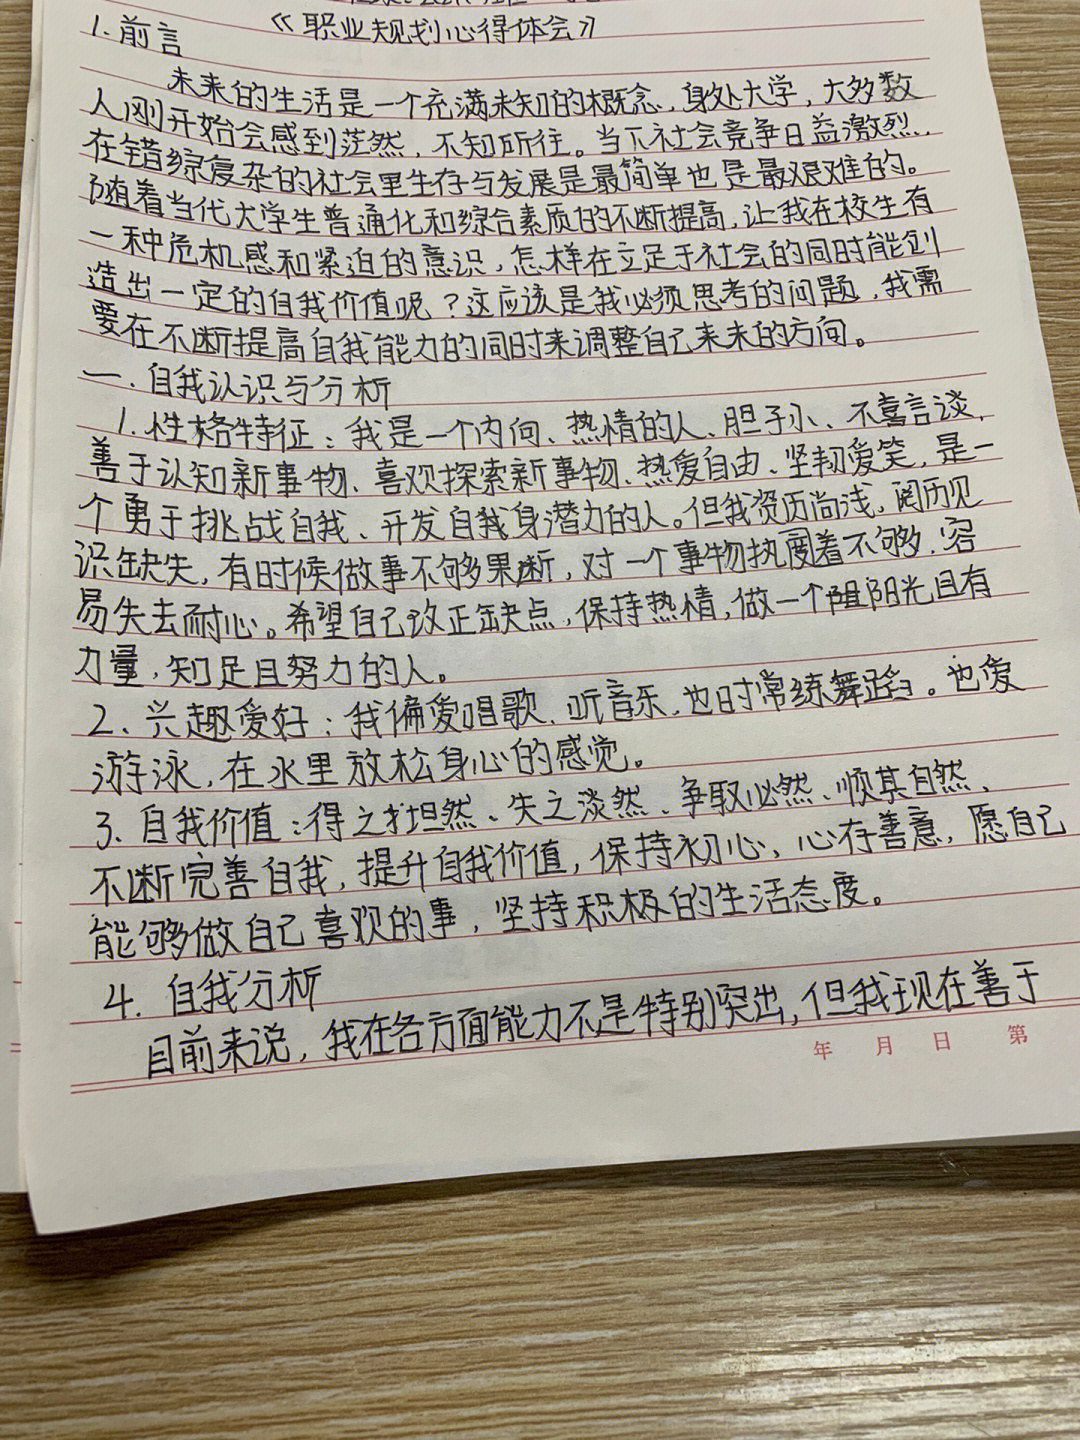 《职业规划心得体会》
1.前言
未来的生活是一个充满未知的概念，身处大学，大多数
人刚开始会感到茫然，不知所往。当下社会竞争日益激烈，
在错综复杂的社会里生存与发展是最简单也是最艰难的。
随着当代大学生普通化和综合素质的不断提高，让我在校生有
一种危机感和紧迫的意识，怎样在立足于社会的同时能创
造出一定的自我价值呢？这应该是我必须思考的问题，我需
要在不断提高自我能力的同时来调整自己未来的方向。
一．自我认识与分析
1.性格特征：我是一个内向、热情的人、胆子小、不喜言谈，
善于认知新事物、喜欢探索新事物、热爱自由、坚韧爱笑，是一
个勇于挑战自我、开发自我身潜力的人。但我资历尚浅，阅历见
识缺失，有时候做事不够果断，对一个事物执度着不够，容
易失去耐心。希望自己改正缺点，保持热情，做一个阻阳光且有
力量，知足且努力的人。
2、兴趣爱好：我偏爱唱歌、听音乐，也时常练舞蹈。也爱
游泳，在水里放松身心的感觉。
3、自我价值：得之坦然、失之淡然、争取必然、顺其自然、
不断完善自我，提升自我价值，保持初心，心存善意，愿自己
能够做自己喜欢的事，坚持积极的生活态度。
4．自我分析
目前来说，我在各方面能力不是特别突出，但我现在善于
年 月 日 第